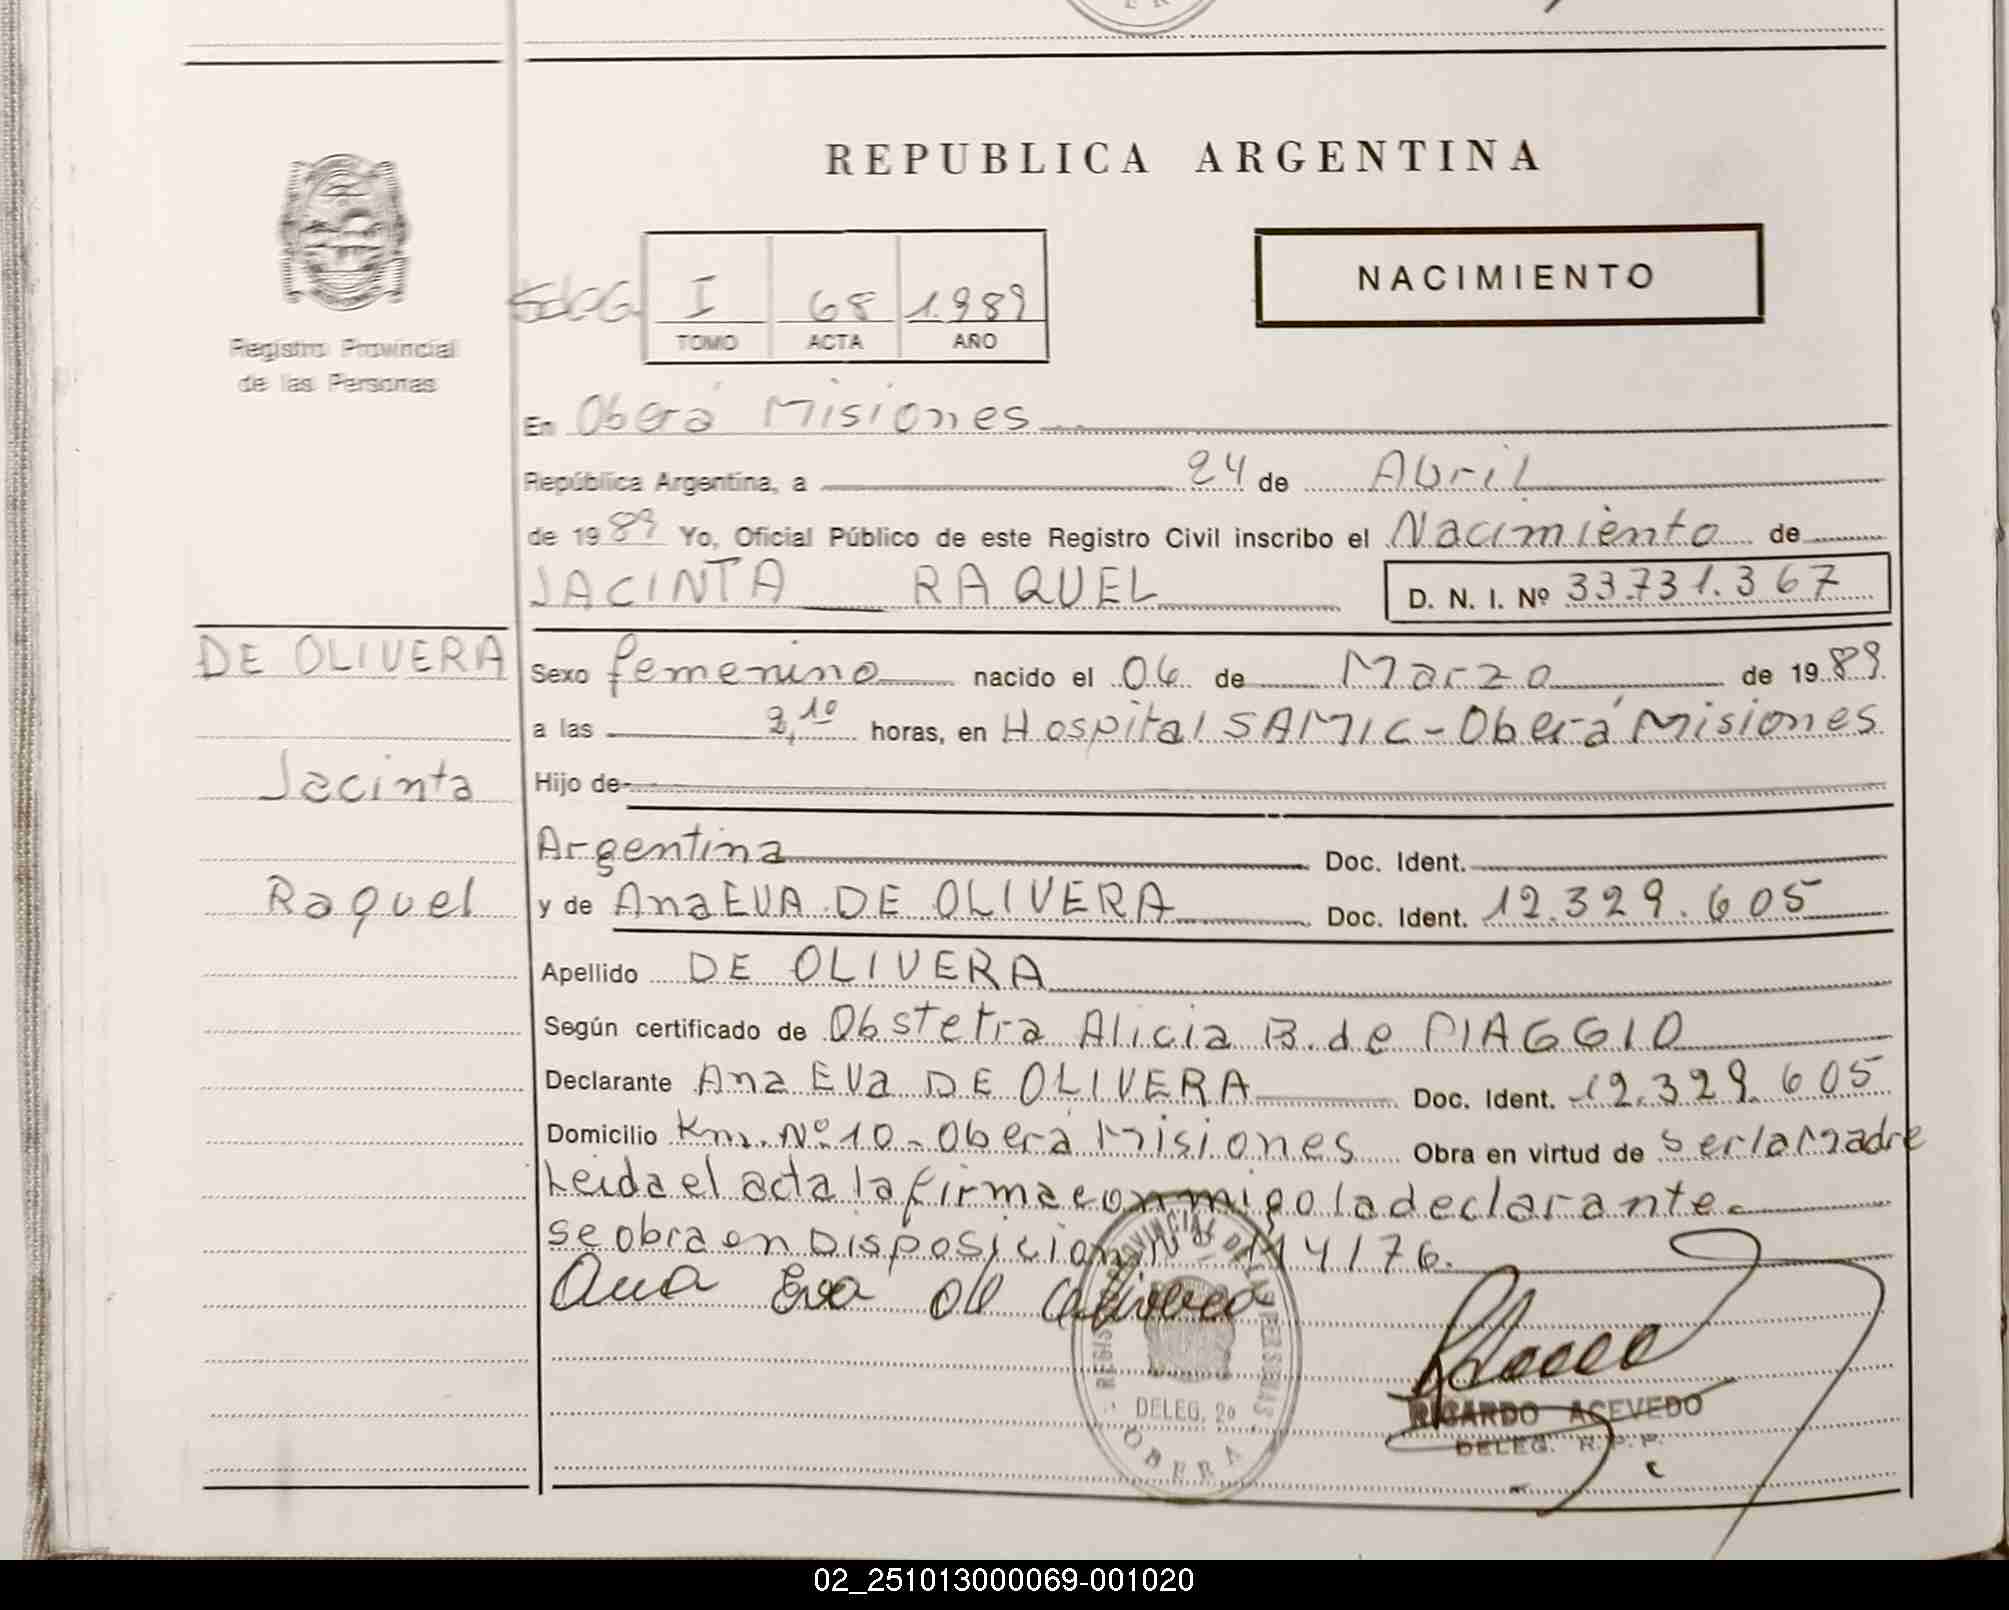 REPUBLICA ARGENTINA
NACIMIENTO
I 68 1.989
TOMO ACTA AÑO
Registro Provincial
de las Personas
En Oberá Misiones
República Argentina, a 24 de Abril
de 1989 Yo, Oficial Público de este Registro Civil inscribo el Nacimiento de
JACINTA RAQUEL D. N. I. Nº 33.731.367
DE OLIVERA
Jacinta
Raquel
Sexo femenino nacido el 06 de Marzo de 1989
a las horas, en Hospital SAMIC - Oberá Misiones
Hijo de
Argentina Doc. Ident.
y de Ana EVA DE OLIVERA Doc. Ident. 12.329.605
Apellido DE OLIVERA
Según certificado de Obstetra Alicia B. de PIAGGIO
Declarante Ana Eva DE OLIVERA Doc. Ident. 12.329.605
Domicilio Km. Nº 10 - Oberá Misiones Obra en virtud de ser la Madre
Leida el acta la firma conmigo la declarante.
se obra en Disposicion Nº 114/76.
Ana Eva de Olivera
REGISTRO PROVINCIAL DE LAS PERSONAS
DELEG. 2ª
OBERA
RICARDO ACEVEDO
DELEG. R.P.P.
02_251013000069-001020